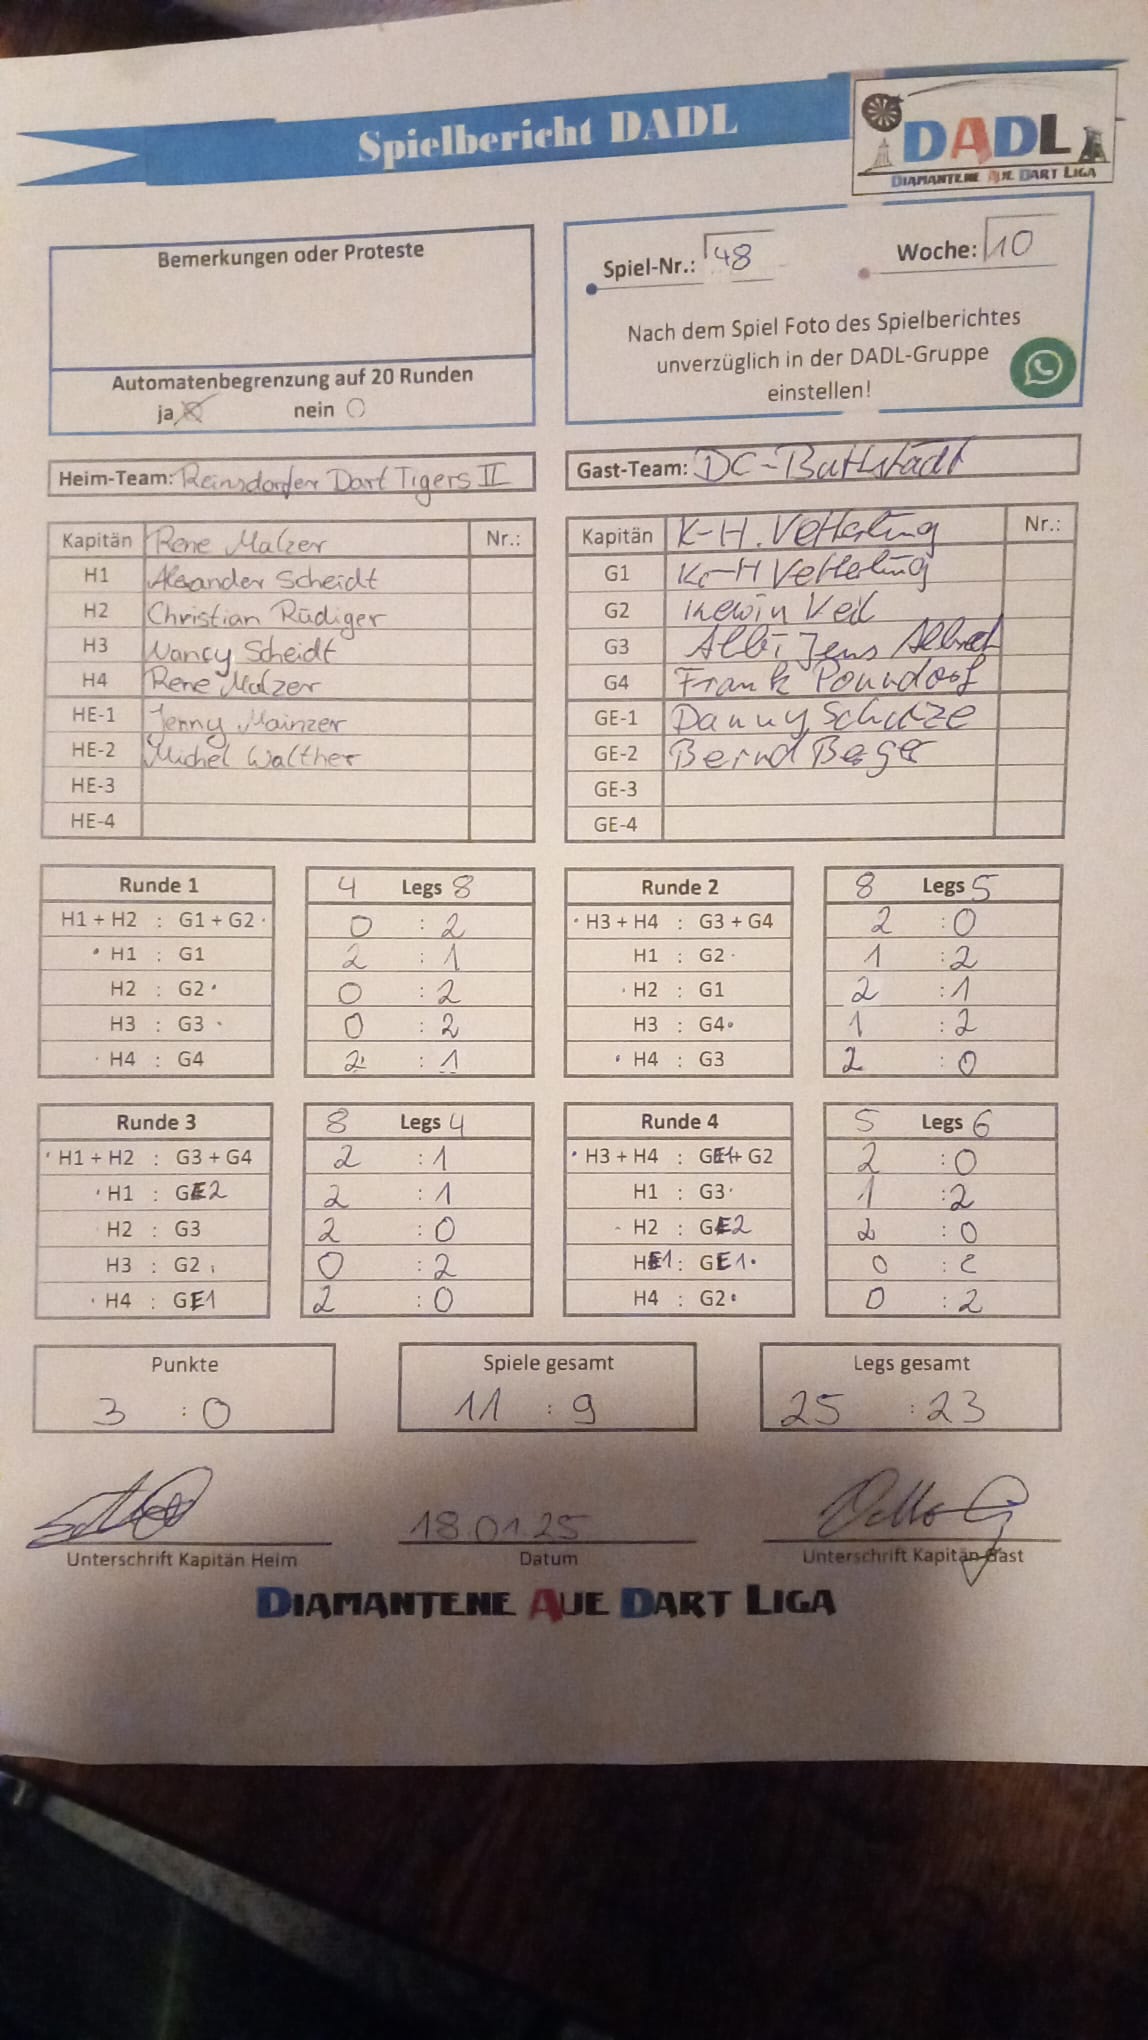 Spielbericht DADL
DADL
DIAMANTENE AUE DART LIGA
Bemerkungen oder Proteste
Automatenbegrenzung auf 20 Runden
ja nein
Spiel-Nr.: 48 Woche: 10
Nach dem Spiel Foto des Spielberichtes
unverzüglich in der DADL-Gruppe
einstellen!
Heim-Team: Reinsdorfer Dart Tigers II
Gast-Team: DC-Buttstädt
Kapitän Rene Malzer Nr.:
H1 Alexander Scheidt
H2 Christian Rüdiger
H3 Nancy Scheidt
H4 Rene Malzer
HE-1 Jenny Mainzer
HE-2 Michel Walther
HE-3
HE-4
Kapitän K-H. Nr.:
G1 K-H
G2 Kewin Keil
G3 Albi Jens
G4 Frank Poundorf
GE-1 Danny Schulze
GE-2 Bernd Berger
GE-3
GE-4
Runde 1 4 Legs 8
H1 + H2 : G1 + G2 0 : 2
H1 : G1 2 : 1
H2 : G2 0 : 2
H3 : G3 0 : 2
H4 : G4 2 : 1
Runde 2 8 Legs 5
H3 + H4 : G3 + G4 2 : 0
H1 : G2 1 : 2
H2 : G1 2 : 1
H3 : G4 1 : 2
H4 : G3 2 : 0
Runde 3 8 Legs 4
H1 + H2 : G3 + G4 2 : 1
H1 : GE2 2 : 1
H2 : G3 2 : 0
H3 : G2 0 : 2
H4 : GE1 2 : 0
Runde 4 5 Legs 6
H3 + H4 : GE1 + G2 2 : 0
H1 : G3 1 : 2
H2 : GE2 2 : 0
HE1 : GE1 0 : 2
H4 : G2 0 : 2
Punkte
3 : 0
Spiele gesamt
11 : 9
Legs gesamt
25 : 23
18.01.25
Unterschrift Kapitän Heim
Datum
Unterschrift Kapitän Gast
DIAMANTENE AUE DART LIGA